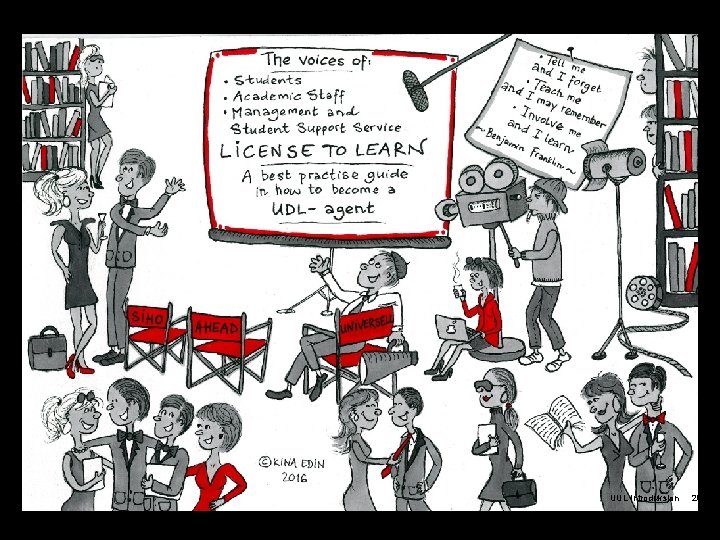 The voices of:
• Students
• Academic Staff
• Management and
Student Support Service
LICENSE TO LEARN
A best practise guide
in how to become a
UDL- agent
• Tell me
and I forget
• Teach me
and I may remember
• Involve me
and I learn
~ Benjamin Franklin ~
SIHO
AHEAD
UNIVERSELL
© KINA EDIN
2016